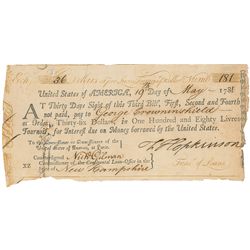 36 Dollars Numb. 181
United States of AMERICA, 19th Day of May 1781
AT Thirty Days Sight of this Third Bill, First, Second and Fourth
not paid, pay to George Crowninshield
or Order, Thirty-six Dollars, in One Hundred and Eighty Livres
Tournois, for Interest due on Money borrowed by the United States.
To the Commissioner or Commissioners of the
United States of America, at Paris.
F Hopkinson
Countersigned, Nich Gilman
Commissioner of the Continental Loan-Office in the
State of New Hampshire
Treas. of Loans